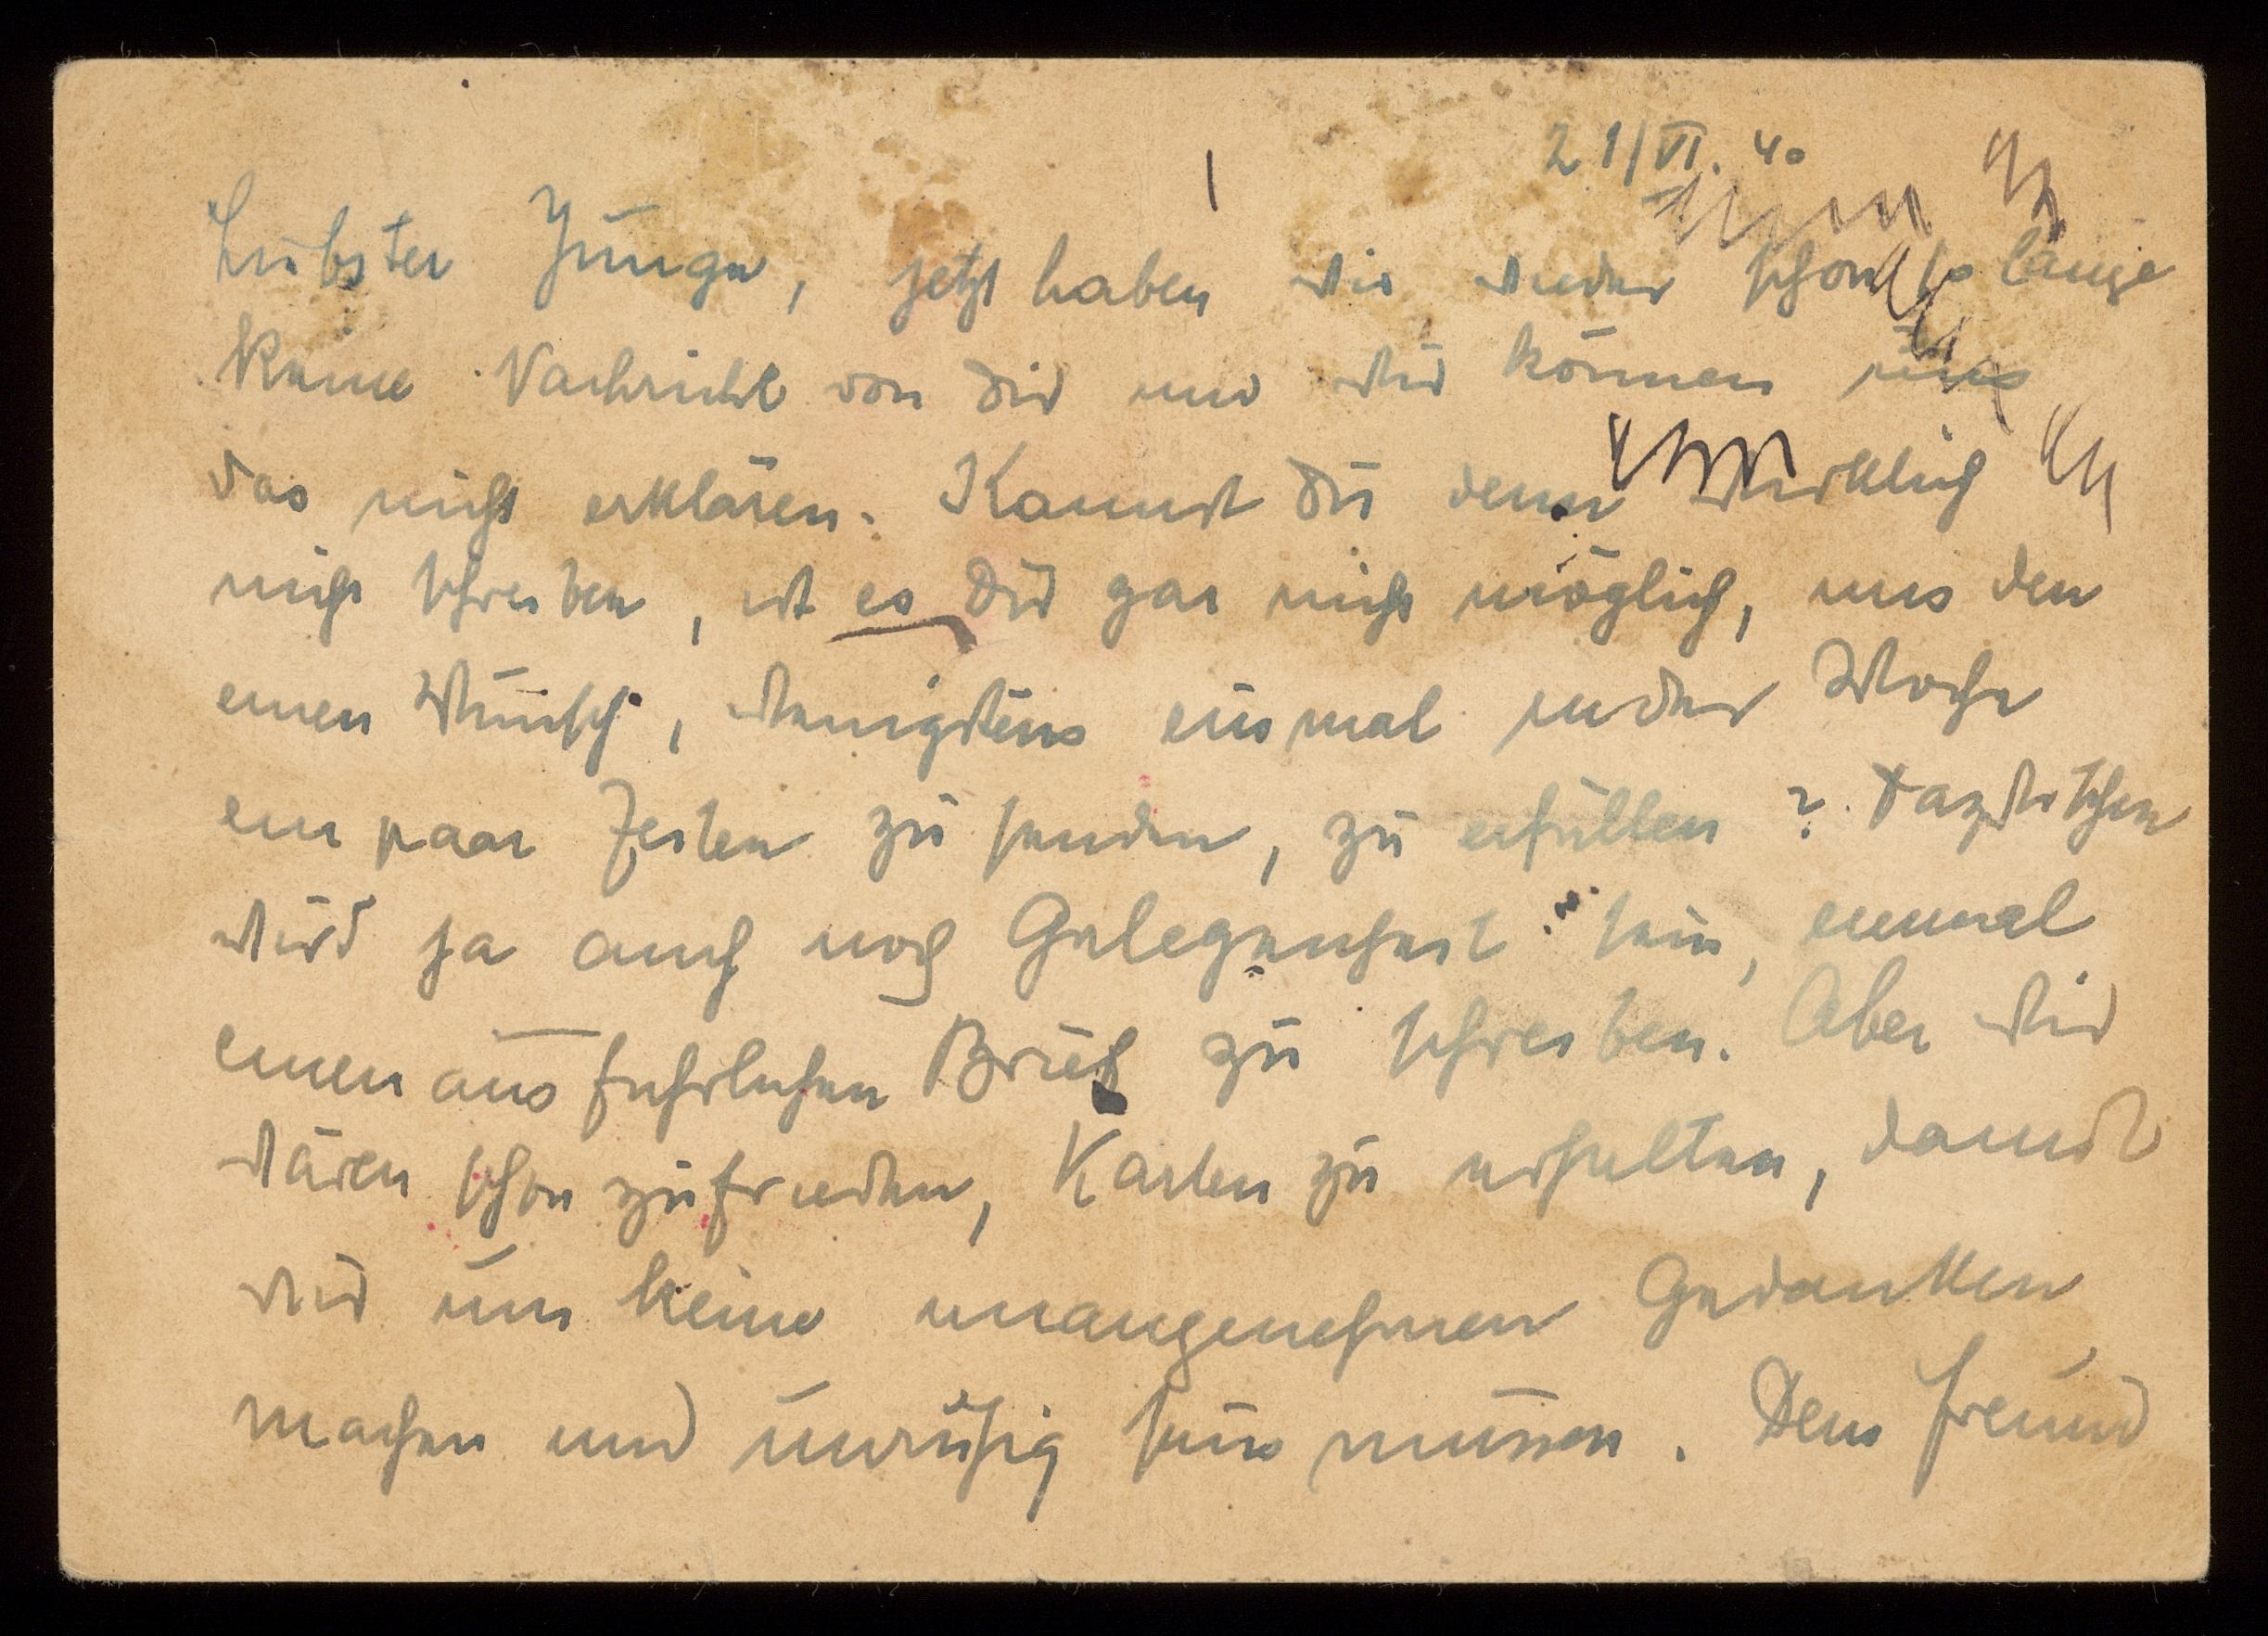 21/VI. 40
Liebster Junge, jetzt haben wir wieder schon so lange
keine Nachricht von Dir und wir können uns
das nicht erklären. Kannst Du denn wirklich
nicht schreiben, ist es Dir gar nicht möglich, uns den
einen Wunsch, wenigstens einmal in der Woche
ein paar Zeilen zu senden, zu erfüllen? Dazwischen
wird ja auch noch Gelegenheit sein, einmal
einen ausfuhrlichen Brief zu schreiben. Aber wir
wären schon zufrieden, Karten zu erhalten, damit
wir uns keine unangenehmen Gedanken
machen und unruhig sein müssen. Dein Freund